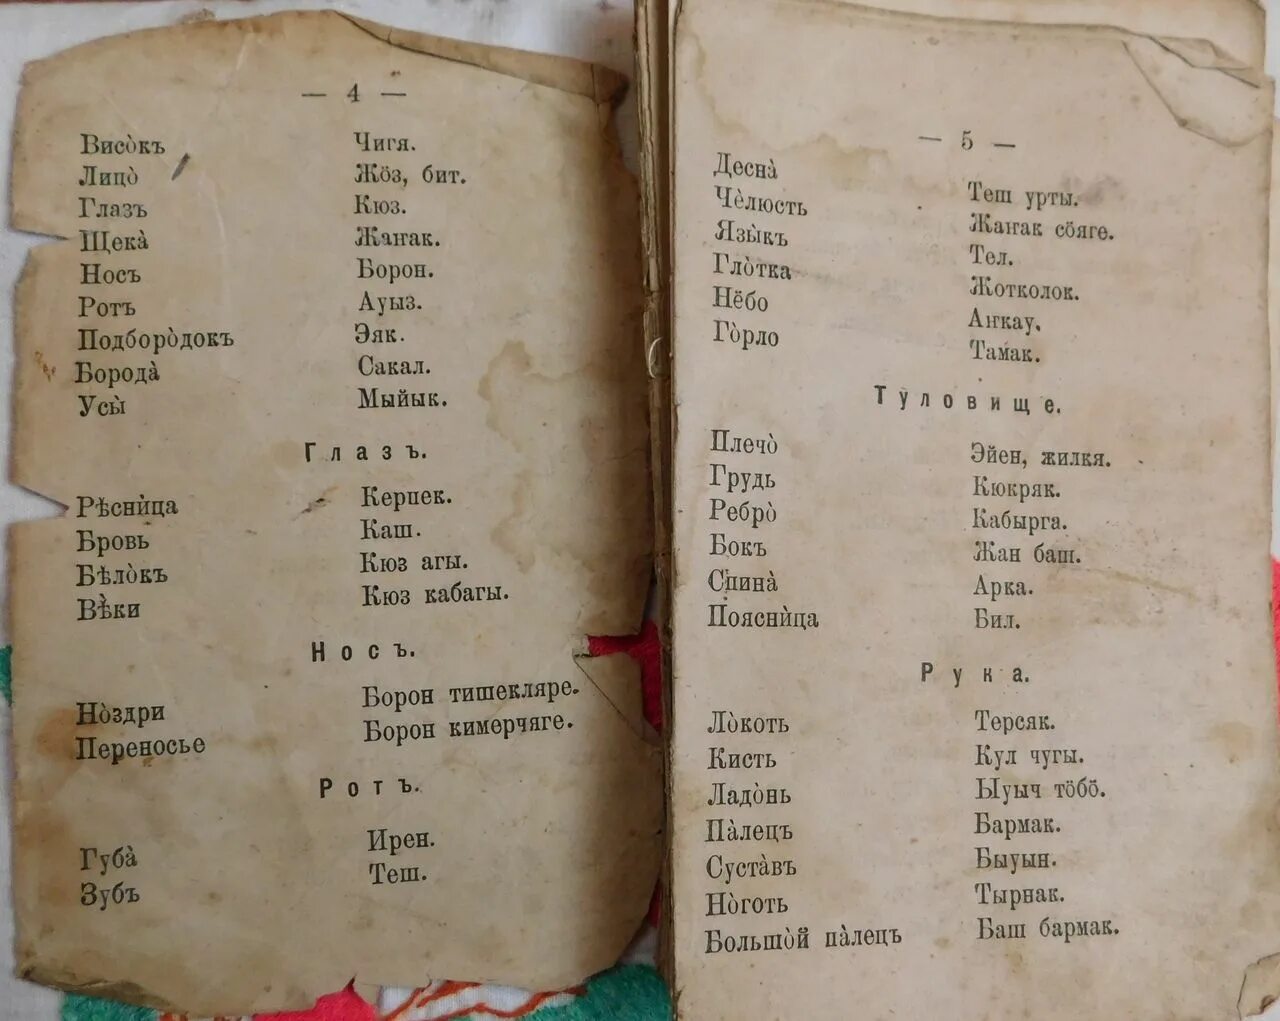 — 4 —
Висо̀къ Чигя.
Лицо̀ Жӧз, бит.
Глазъ Кюз.
Щека̀ Жаҥак.
Носъ Борон.
Ротъ Ауыз.
Подборо̀докъ Эяк.
Борода̀ Сакал.
Усы̀ Мыйык.
Глазъ.
Рѣснѝца Керпек.
Бровь Каш.
Бѣло̀къ Кюз агы.
Вѣ̀ки Кюз кабагы.
Носъ.
Но̀здри Борон тишекляре.
Переносье Борон кимерчяге.
Ротъ.
Губа̀ Ирен.
Зубъ Теш.
— 5 —
Десна̀ Теш урты.
Чѐлюсть Жаҥак сӧяге.
Язы̀къ Тел.
Гло̀тка Жотколок.
Нёбо Аҥкау.
Го̀рло Тамак.
Ту̀ловище.
Плечо̀ Эйен, жилкя.
Грудь Кюкряк.
Ребро̀ Кабырга.
Бокъ Жан баш.
Спина̀ Арка.
Пояснѝца Бил.
Рука.
Ло̀коть Терсяк.
Кисть Кул чугы.
Ладо̀нь Ыуыч тӧбӧ.
Па̀лецъ Бармак.
Суста̀въ Быуын.
Но̀готь Тырнак.
Большо̀й па̀лецъ Баш бармак.